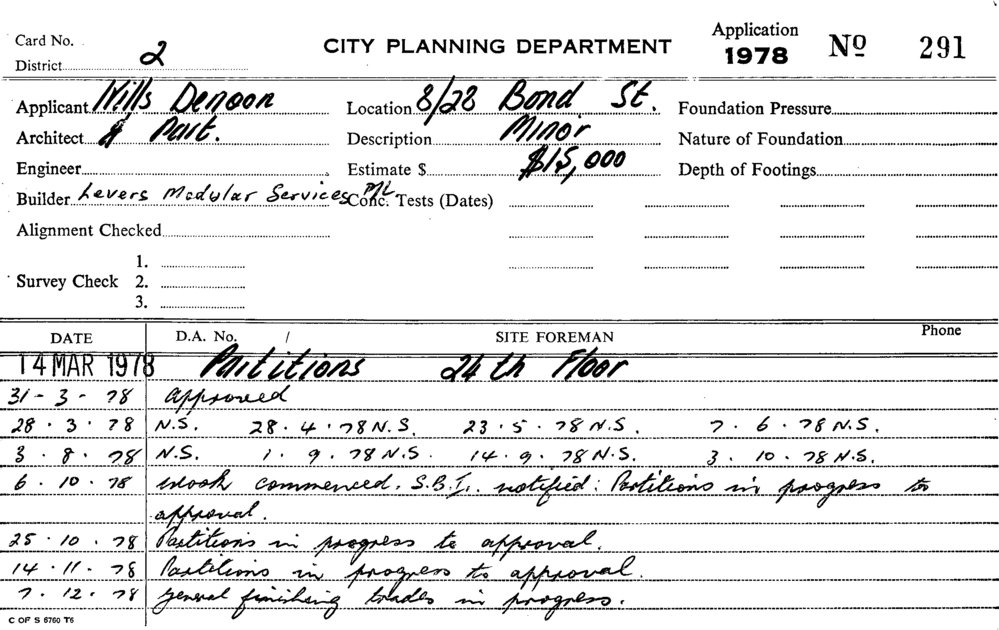 Card No.
District 2
CITY PLANNING DEPARTMENT
Application
1978 Nº 291
Applicant Wills Denoon
Architect & Part.
Engineer
Builder Levers Modular Services P/L
Alignment Checked
Survey Check 1.
2.
3.
Location 8/28 Bond St.
Description Minor
Estimate $ $15,000
Conc. Tests (Dates)
Foundation Pressure
Nature of Foundation
Depth of Footings
DATE D.A. No. / SITE FOREMAN Phone
14 MAR 1978 Partitions 24th Floor
31-3-78 Approved
28.3.78 N.S. 28.4.78 N.S. 23.5.78 N.S. 7.6.78 N.S.
3.8.78 N.S. 1.9.78 N.S. 14.9.78 N.S. 3.10.78 N.S.
6.10.78 Work commenced. S.B.I. notified: Partitions in progress to
approval.
25.10.78 Partitions in progress to approval.
14.11.78 Partitions in progress to approval.
7.12.78 General finishing trades in progress.
C OF S 6760 T6